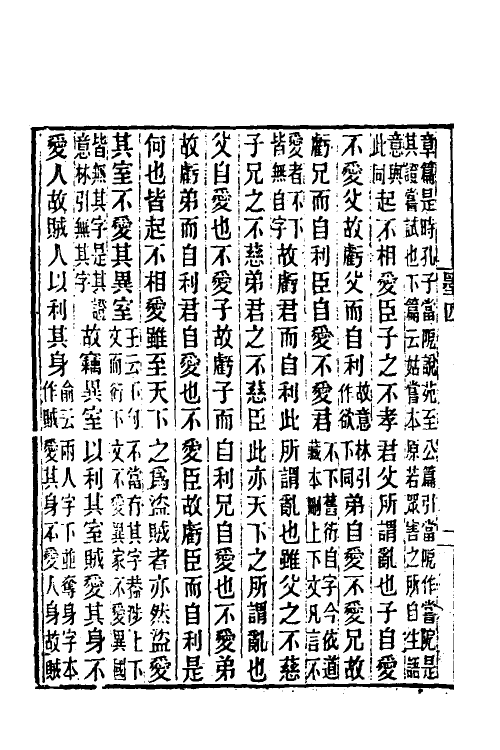 章篇是時孔子當阨說苑至公篇引當阨作嘗阨是
其證嘗試也下篇云姑嘗本原若眾害之所自生語
意與此同起不相愛臣子之不孝君父所謂亂也子自愛
不愛父故虧父而自利故意林引作欲下同弟自愛不愛兄故
虧兄而自利臣自愛不愛君不下舊衍自字今依道藏本刪上下文凡言不
愛者不下皆無自字故虧君而自利此所謂亂也雖父之不慈
子兄之不慈弟君之不慈臣此亦天下之所謂亂也
父自愛也不愛子故虧子而自利兄自愛也不愛弟
故虧弟而自利君自愛也不愛臣故虧臣而自利是
何也皆起不相愛雖至天下之為盜賊者亦然盜愛
其室不愛其異室王云下句不當有其字蓋涉上下文而衍下文不愛異家不愛異國
皆無其字是其證意林引無其字故竊異室以利其室賊愛其身不
愛人故賊人以利其身俞云兩人字下並奪身字本作賊愛其身不愛人身故賊
墨四